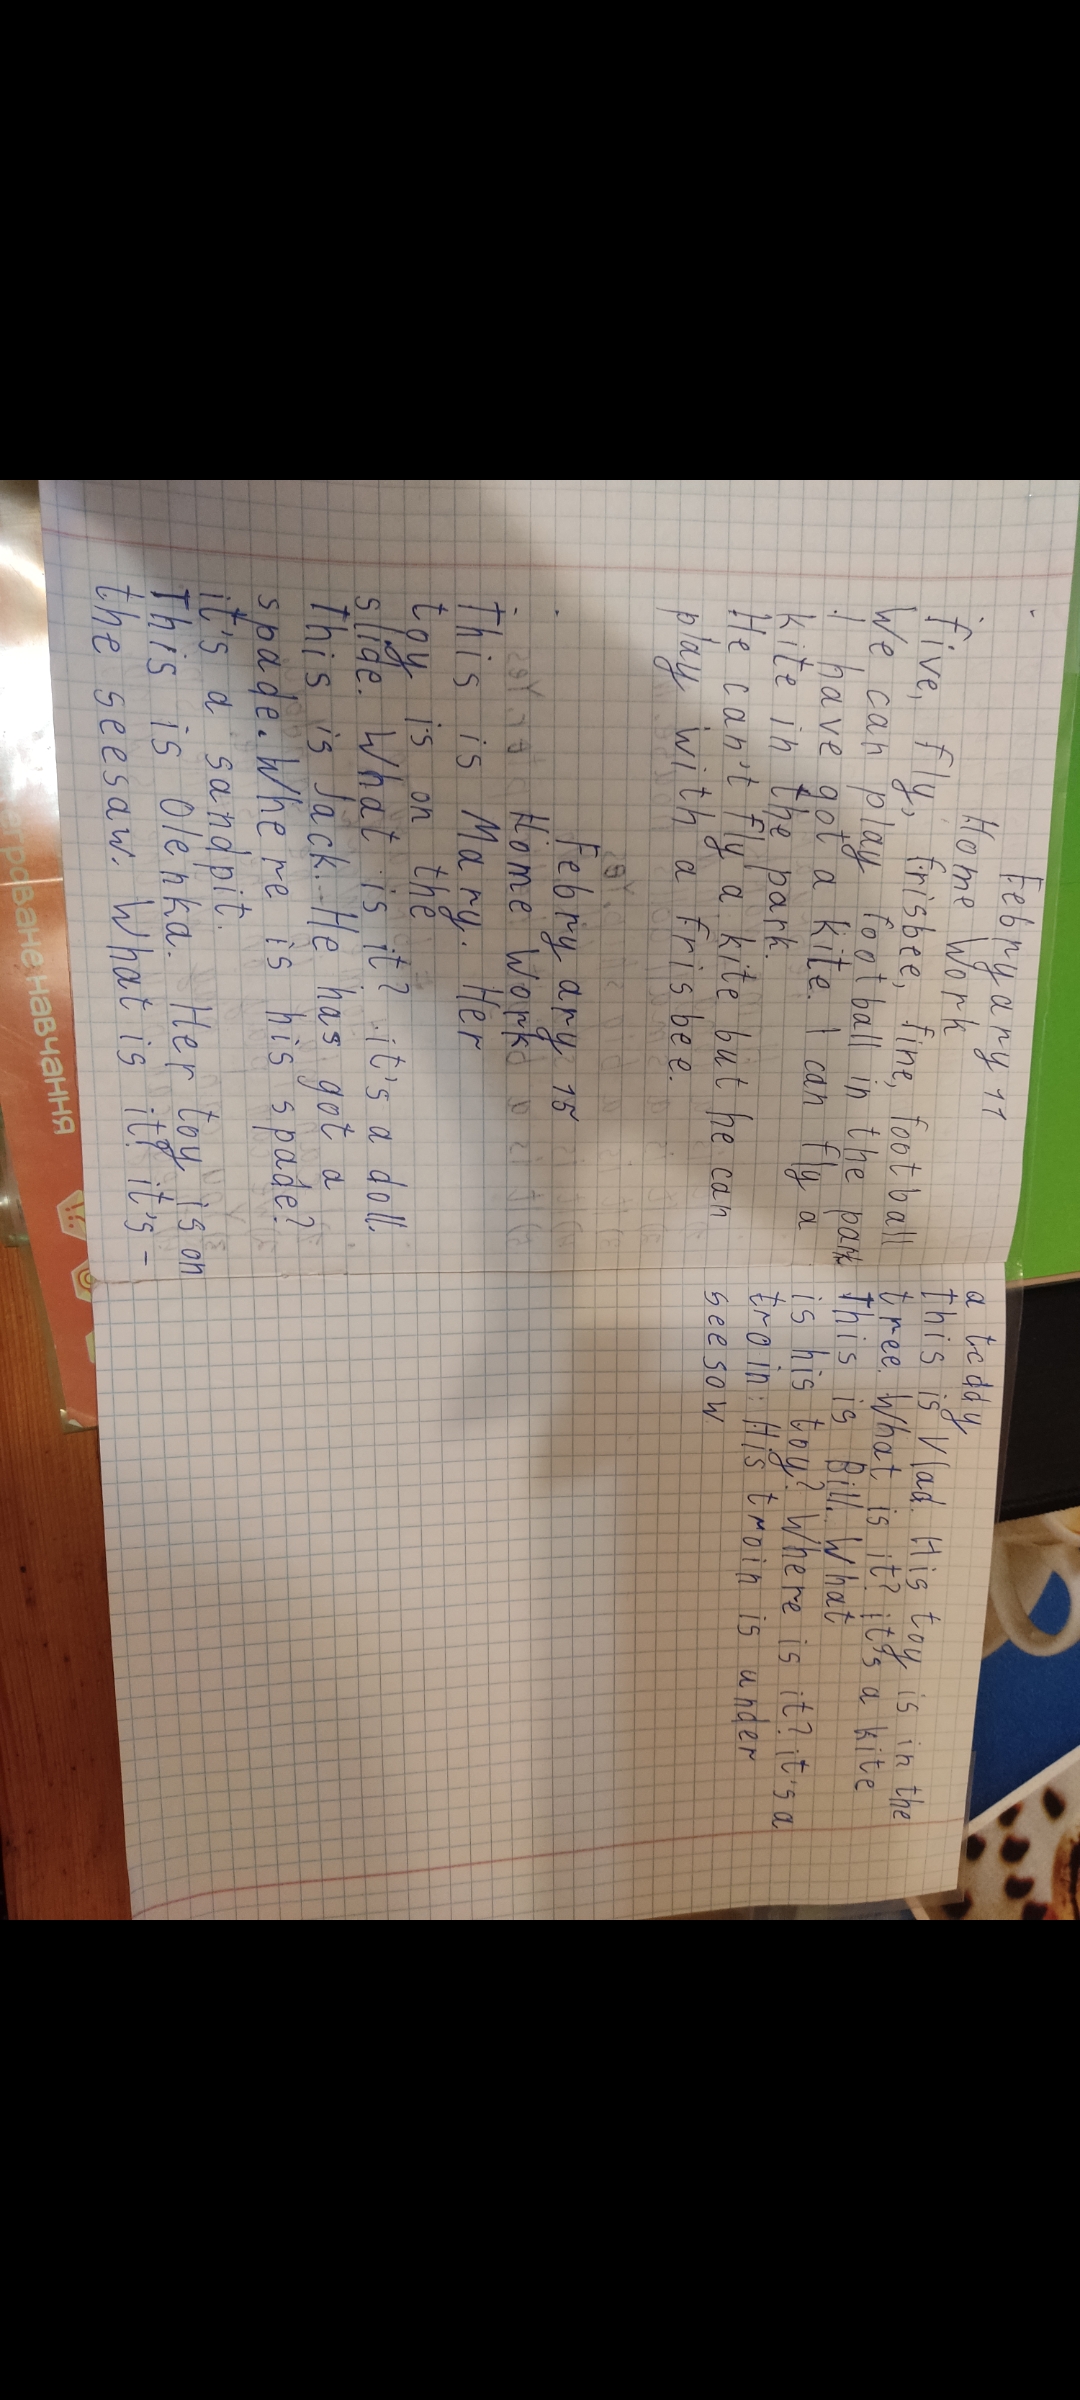 Febryary 11
Home Work
five, fly, frisbee, fine, football
We can play football in the park
I have got a kite. I can fly a
kite in the park.
He can't fly a kite but he can
play with a frisbee.
Febry ary 15
Home Work
This is Mary. Her
toy is on the
slide. What is it? it's a doll.
This is Jack. He has got a
spade. Where is his spade?
it's a sandpit.
This is Olenka. Her toy is on
the seesaw. What is it? it's -
a teddy
This is Vlad. His toy is in the
tree. What is it? it's a kite
This is Bill. What
is his toy? Where is it? it's a
troin. His troin is under
seesow
навчання